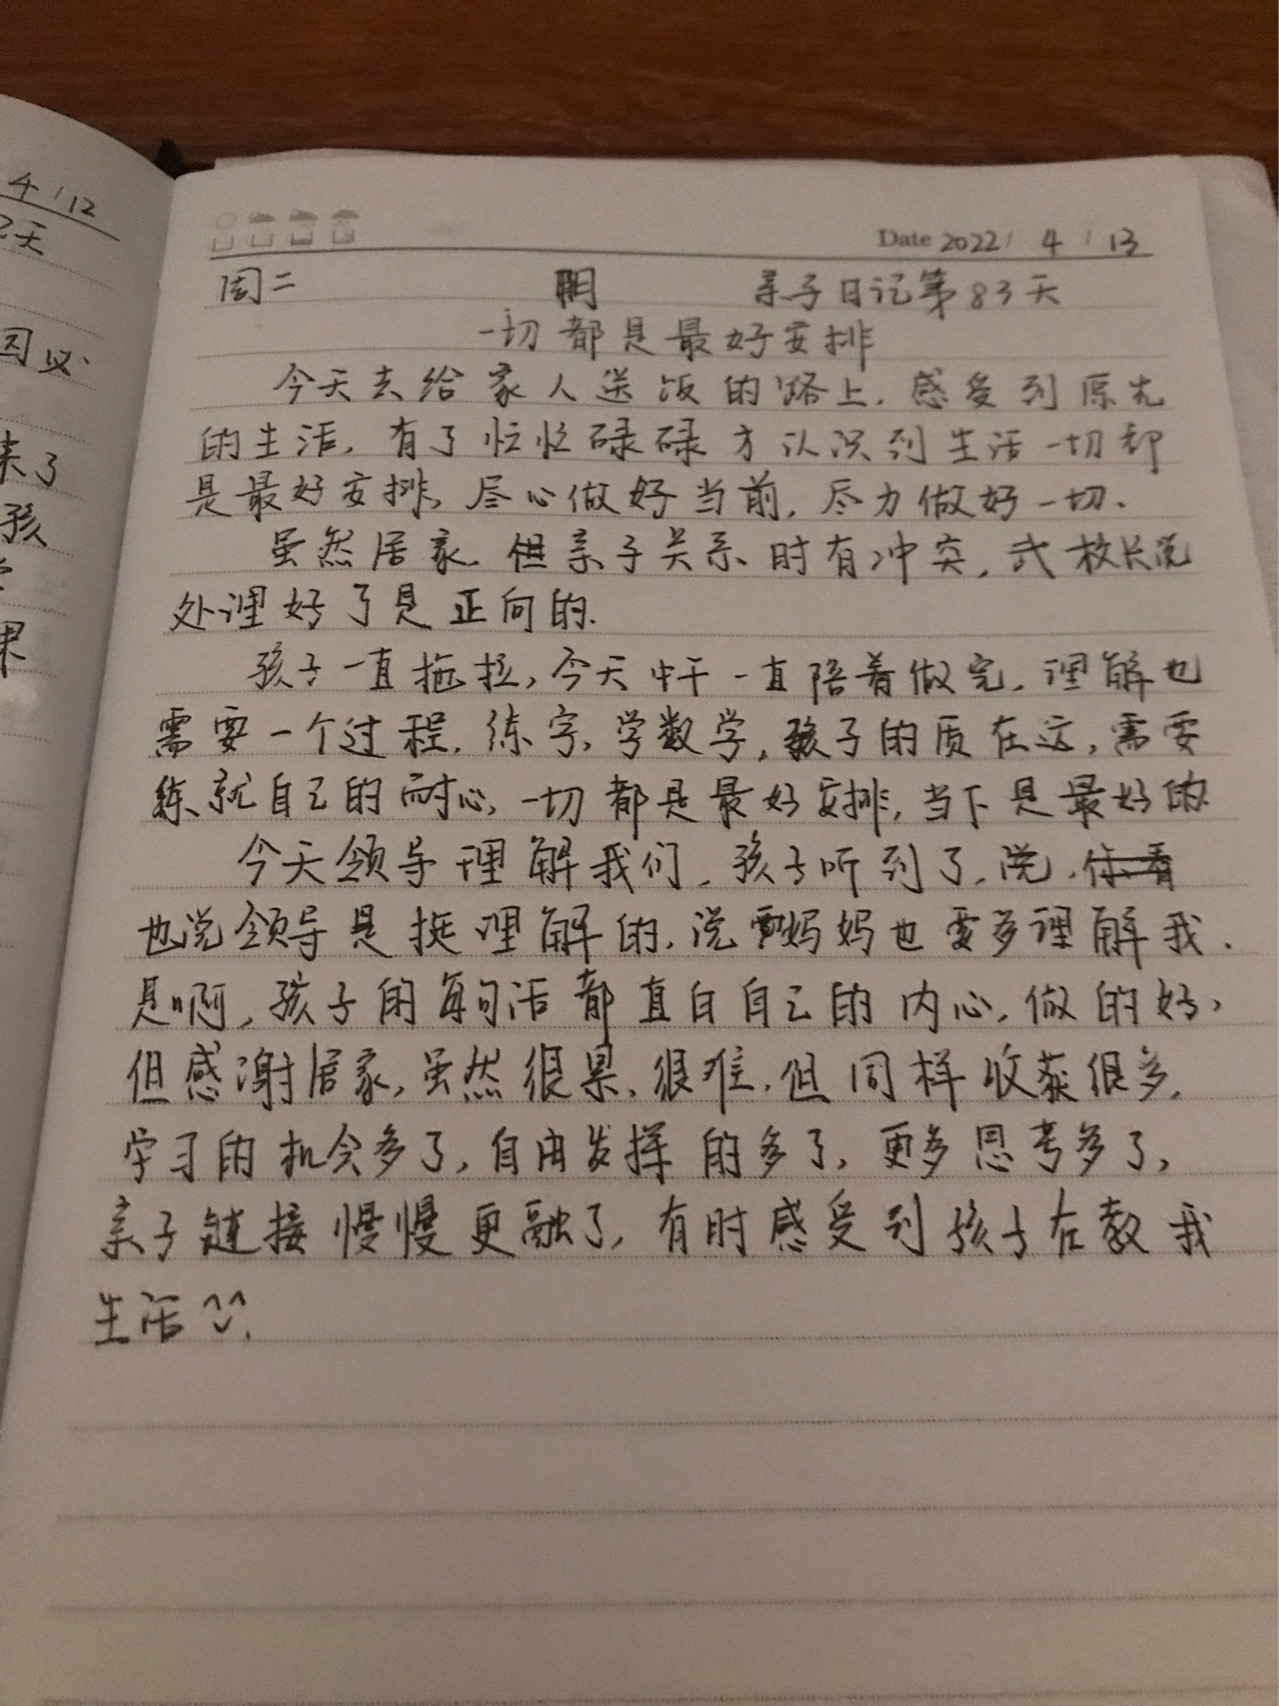 4 / 12
天
因以
来了
孩
果
Date 2022 / 4 / 13
周二 阴 亲子日记第83天
一切都是最好安排
今天去给家人送饭的路上.感受到原先
的生活,有了忙忙碌碌才认识到生活一切都
是最好安排,尽心做好当前,尽力做好一切.
虽然居家.但亲子关系时有冲突,武校长说
处理好了是正向的.
孩子一直拖拉,今天中午一直陪着做完,理解也
需要一个过程.练字,学数学,孩子的质在这,需要
练就自己的耐心,一切都是最好安排,当下是最好的
今天领导理解我们,孩子听到了,说.你看
也说领导是挺理解的,说妈妈也要多理解我.
是啊,孩子的每句话都直白自己的内心,做的好,
但感谢居家,虽然很累,很难,但同样收获很多,
学习的机会多了,自由发挥的多了,更多思考多了,
亲子链接慢慢更融了,有时感受到孩子在教我
生活^^.